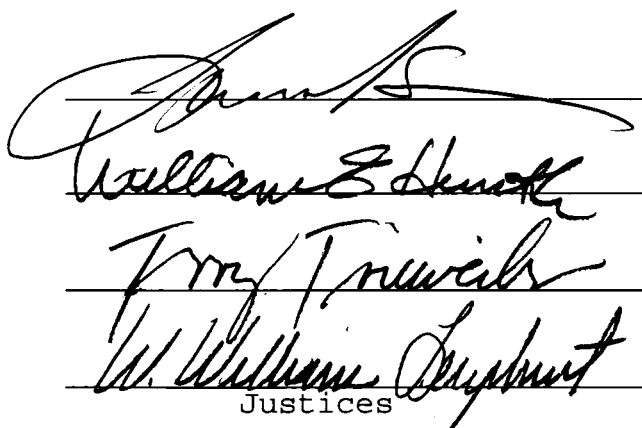 William E Hunt
Terry Trieweiler
W. William Leaphart
Justices